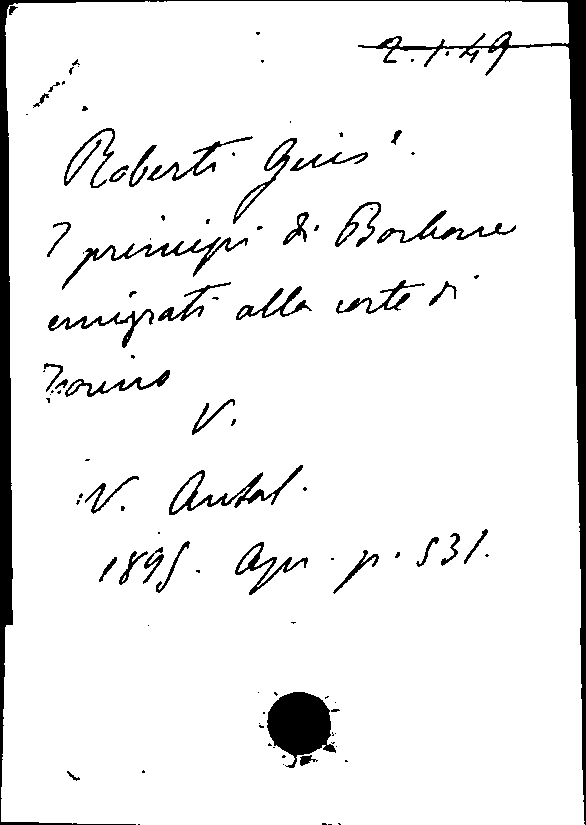 2.1.49
Roberti Gius.
I principi di Borbone
emigrati alla corte di
Torino
V.
N. Antol.
1895. Apr. p. 531.